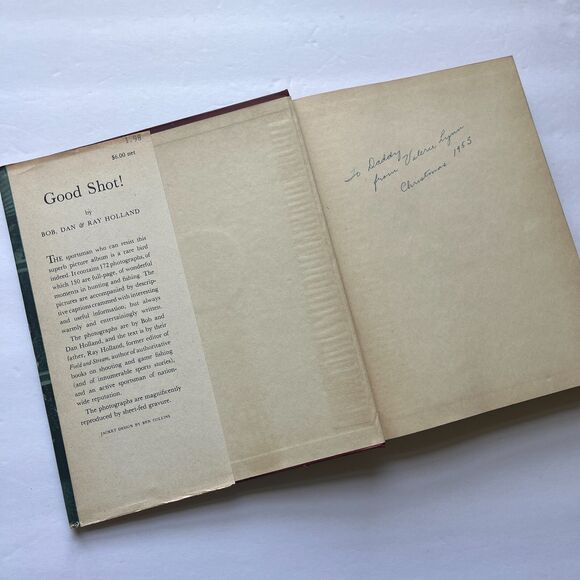 1.98
$6.00 net
Good Shot!
by
BOB, DAN & RAY HOLLAND
THE sportsman who can resist this
superb picture album is a rare bird
indeed. It contains 172 photographs, of
which 150 are full-page, of wonderful
moments in hunting and fishing. The
pictures are accompanied by descrip-
tive captions crammed with interesting
and useful information, but always
warmly and entertainingly written.
The photographs are by Bob and
Dan Holland, and the text is by their
father, Ray Holland, former editor of
Field and Stream, author of authoritative
books on shooting and game fishing
(and of innumerable sports stories),
and an active sportsman of nation-
wide reputation.
The photographs are magnificently
reproduced by sheet-fed gravure.
JACKET DESIGN BY BEN COLLINS
To Daddy
from Valerie Lynn
Christmas 1953